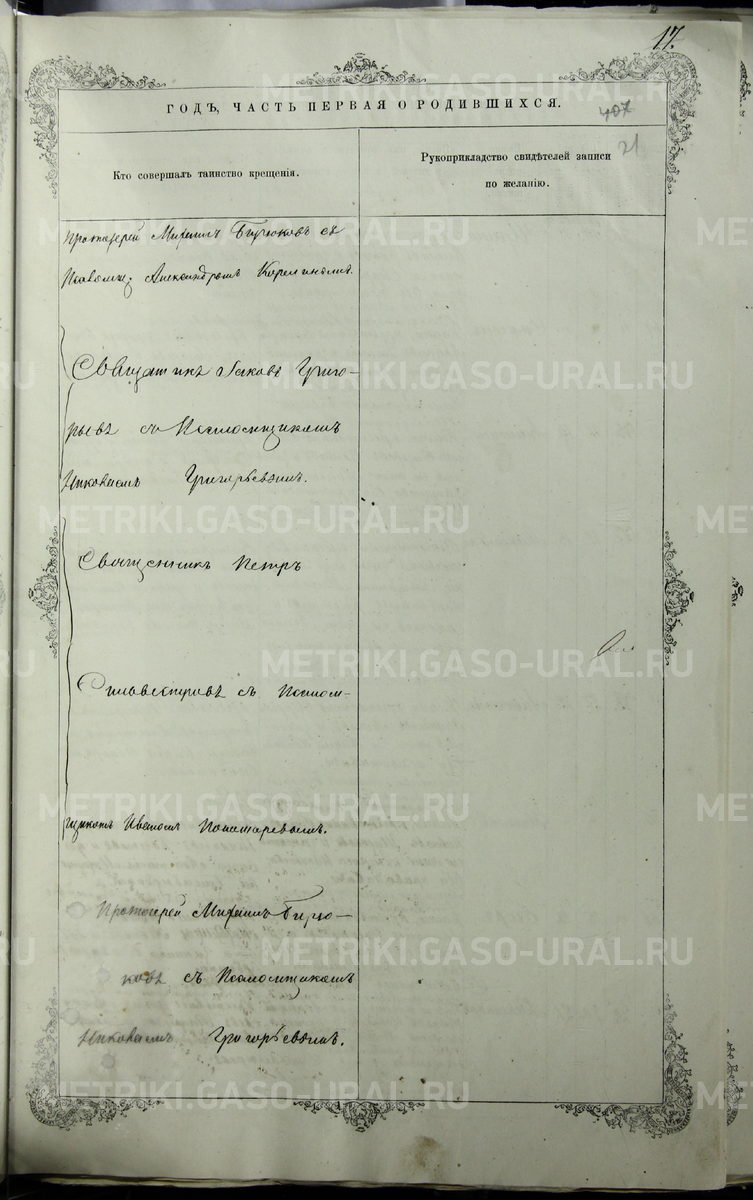 17.
ГОДЪ, ЧАСТЬ ПЕРВАЯ О РОДИВШИХСЯ.
407
21
Кто совершалъ таинство крещенія.
Рукоприкладство свидѣтелей записи
по желанію.
Протоіерей Михаилъ Бирюковъ съ
Александромъ
Священникъ Іаковъ Григо-
рьевъ съ Псаломщикомъ
Николаемъ Григорьевымъ.
Священникъ Петръ
Сильвестровъ съ Псалом-
щикомъ Иваномъ Пономаревымъ.
Протоіерей Михаилъ Бирю-
ковъ съ Псаломщикомъ
Николаемъ Григорьевымъ.
METRIKI.GASO-URAL.RU